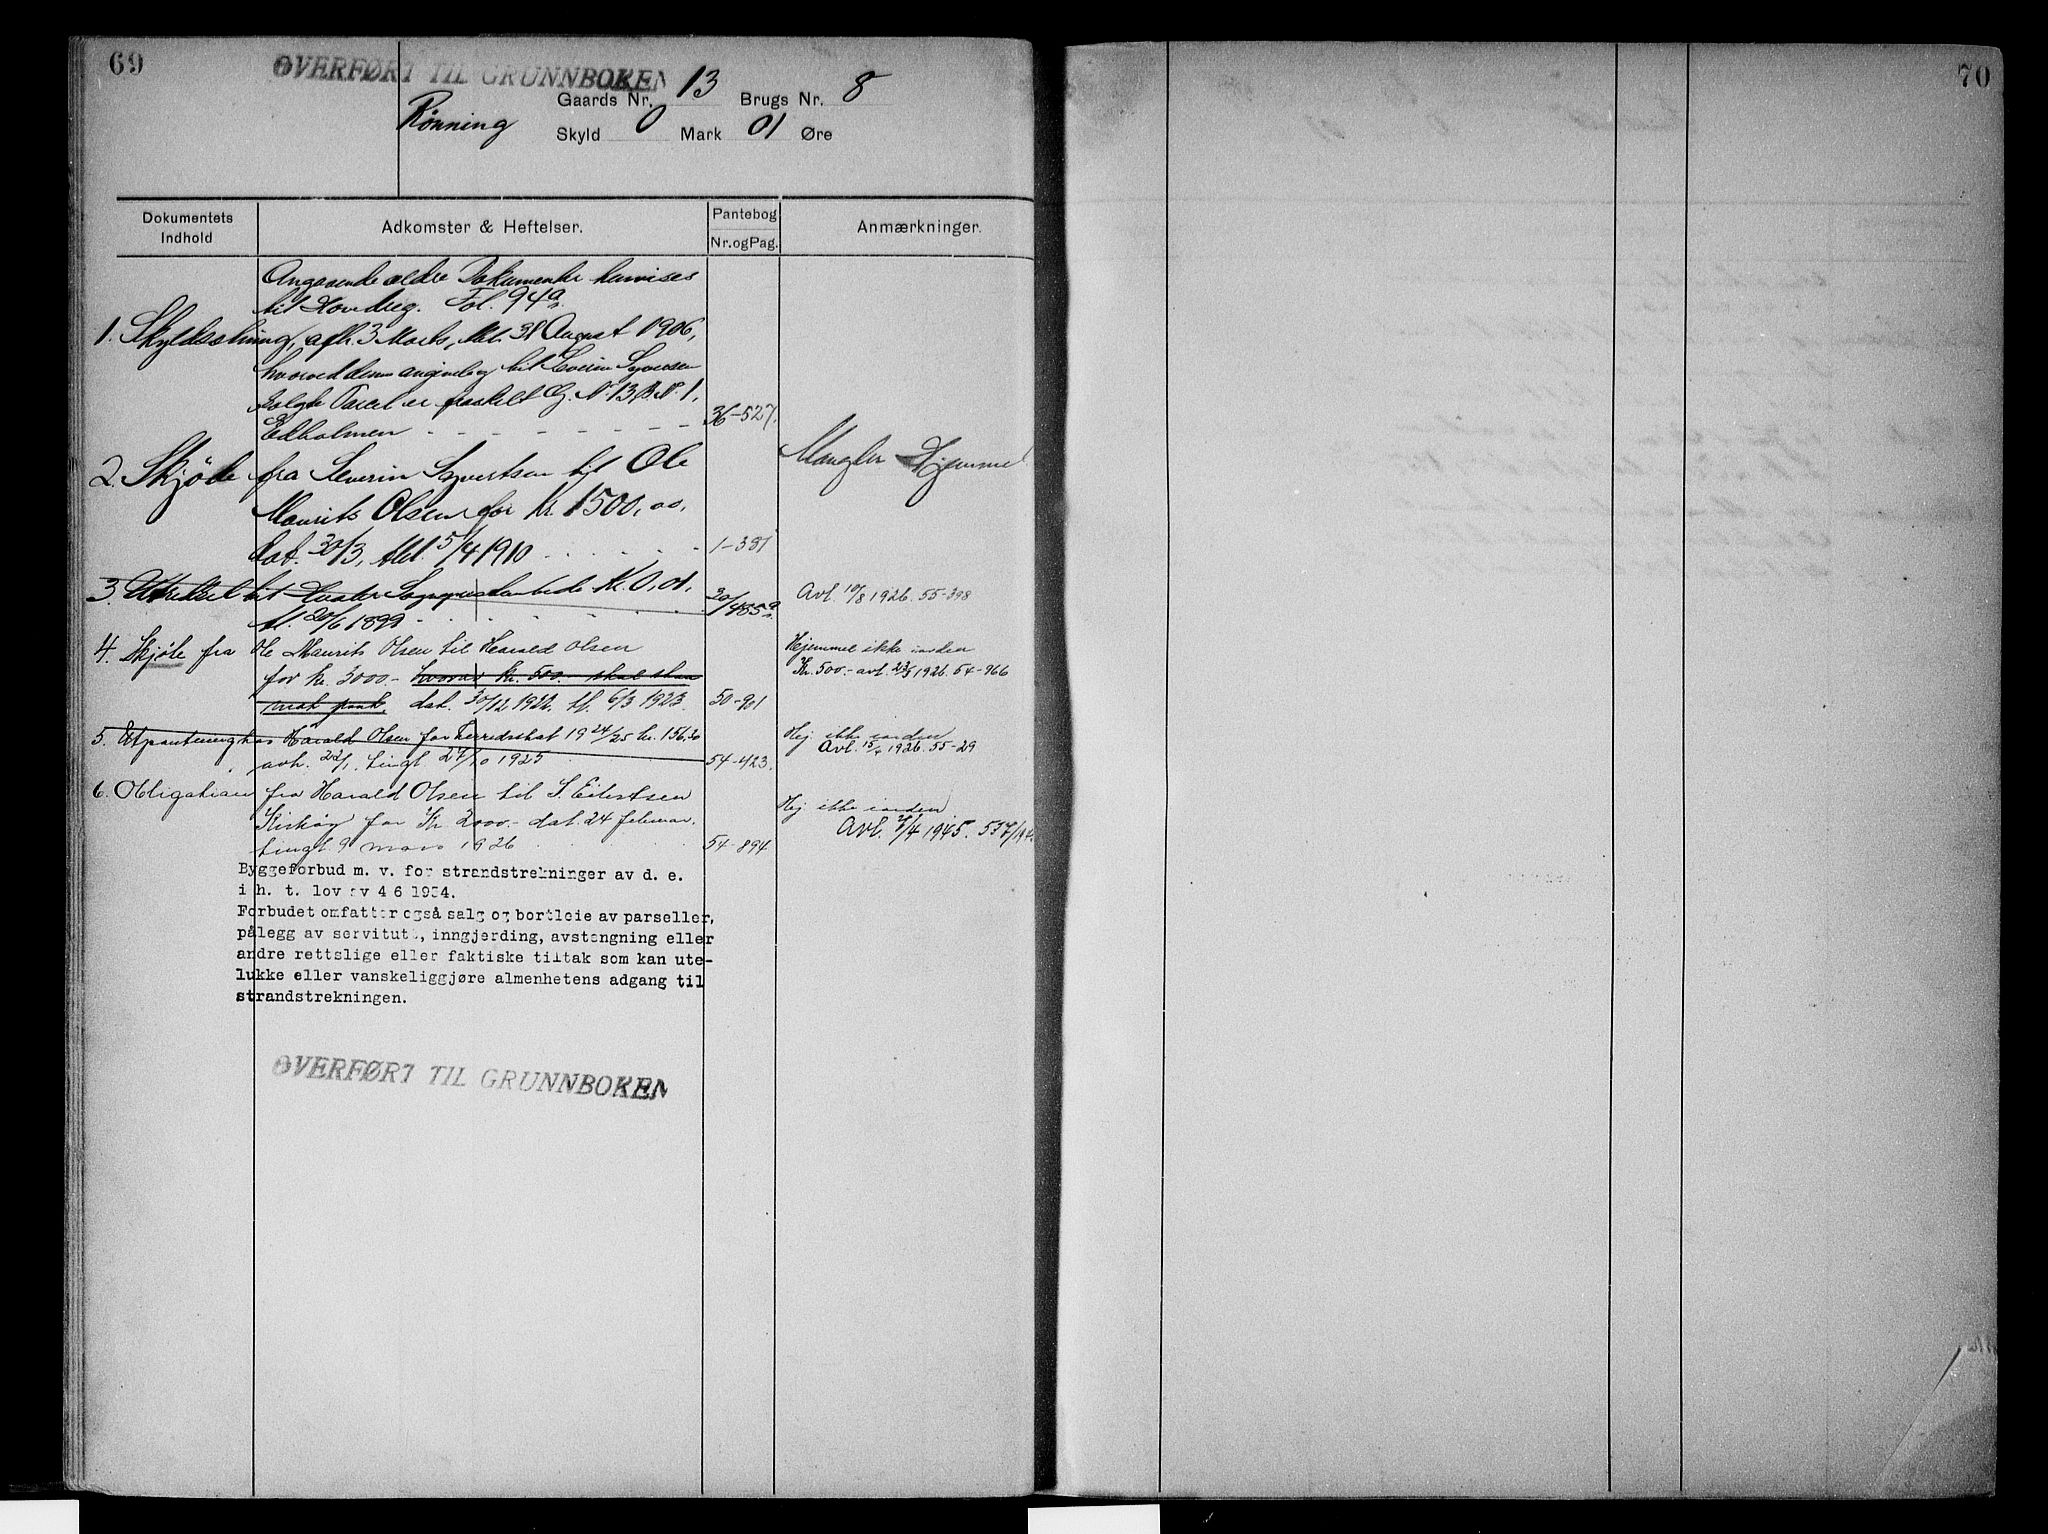 69
OVERFØRT TIL GRUNNBOKEN
Gaards Nr. 13 Brugs Nr. 8
Rønning Skyld 0 Mark 01 Øre
Dokumentets Indhold
Adkomster & Heftelser.
Pantebog Nr. og Pag.
Anmærkninger.
Angaaende ældre Dokumenter henvises
til Fol. 94a.
1. Skyldsetning, afh. 3 Marts, 31 August 1906,
hvorved denne angivelig til Severin Syvertsen
solgte Parcel er fraskilt G. N. 13 B. N. 1,
Edholmen 36-527.
2. Skjøte fra Severin Syvertsen til Ole Mangler Hjemmel
Maurits Olsen for Kr. 1500,00,
dat. 30/3, thl. 5/4 1910 1-381
3. til Kr. 0,01, 30/485a Avl. 10/8 1926. 55-398
tl. 20/6 1899
4. Skjøte fra Ole Maurits Olsen til Harald Olsen Hjemmel ikke iorden
for kr. 3000.- hvorav kr. 500.- skal staa Kr. 500.- avl. 22/3 1926. 54-966
mot pant, dat. 30/12 1922. tl. 6/3 1923. 50-901
5. Utpantning hos Harald Olsen for Herredsskat 1924/25 kr. 156.20 Hj ikke iorden
avh. 22/1, tingl. 27/10 1925 54-423. Avl. 15/4 1926. 55-29
6. Obligation fra Harald Olsen til S. Eilertsen Hj ikke iorden
for Kr 2000.- dat. 24 februar. Avl. 7/4 1945. 557/194
tingl. 9 mars 1926 54-894
Byggeforbud m. v. for strandstrekninger av d. e.
i h. t. lov av 4 6 1954.
Forbudet omfatter også salg og bortleie av parseller,
pålegg av servitutt, inngjerding, avstengning eller
andre rettslige eller faktiske tiltak som kan ute-
lukke eller vanskeliggjøre almenhetens adgang til
strandstrekningen.
OVERFØRT TIL GRUNNBOKEN
70